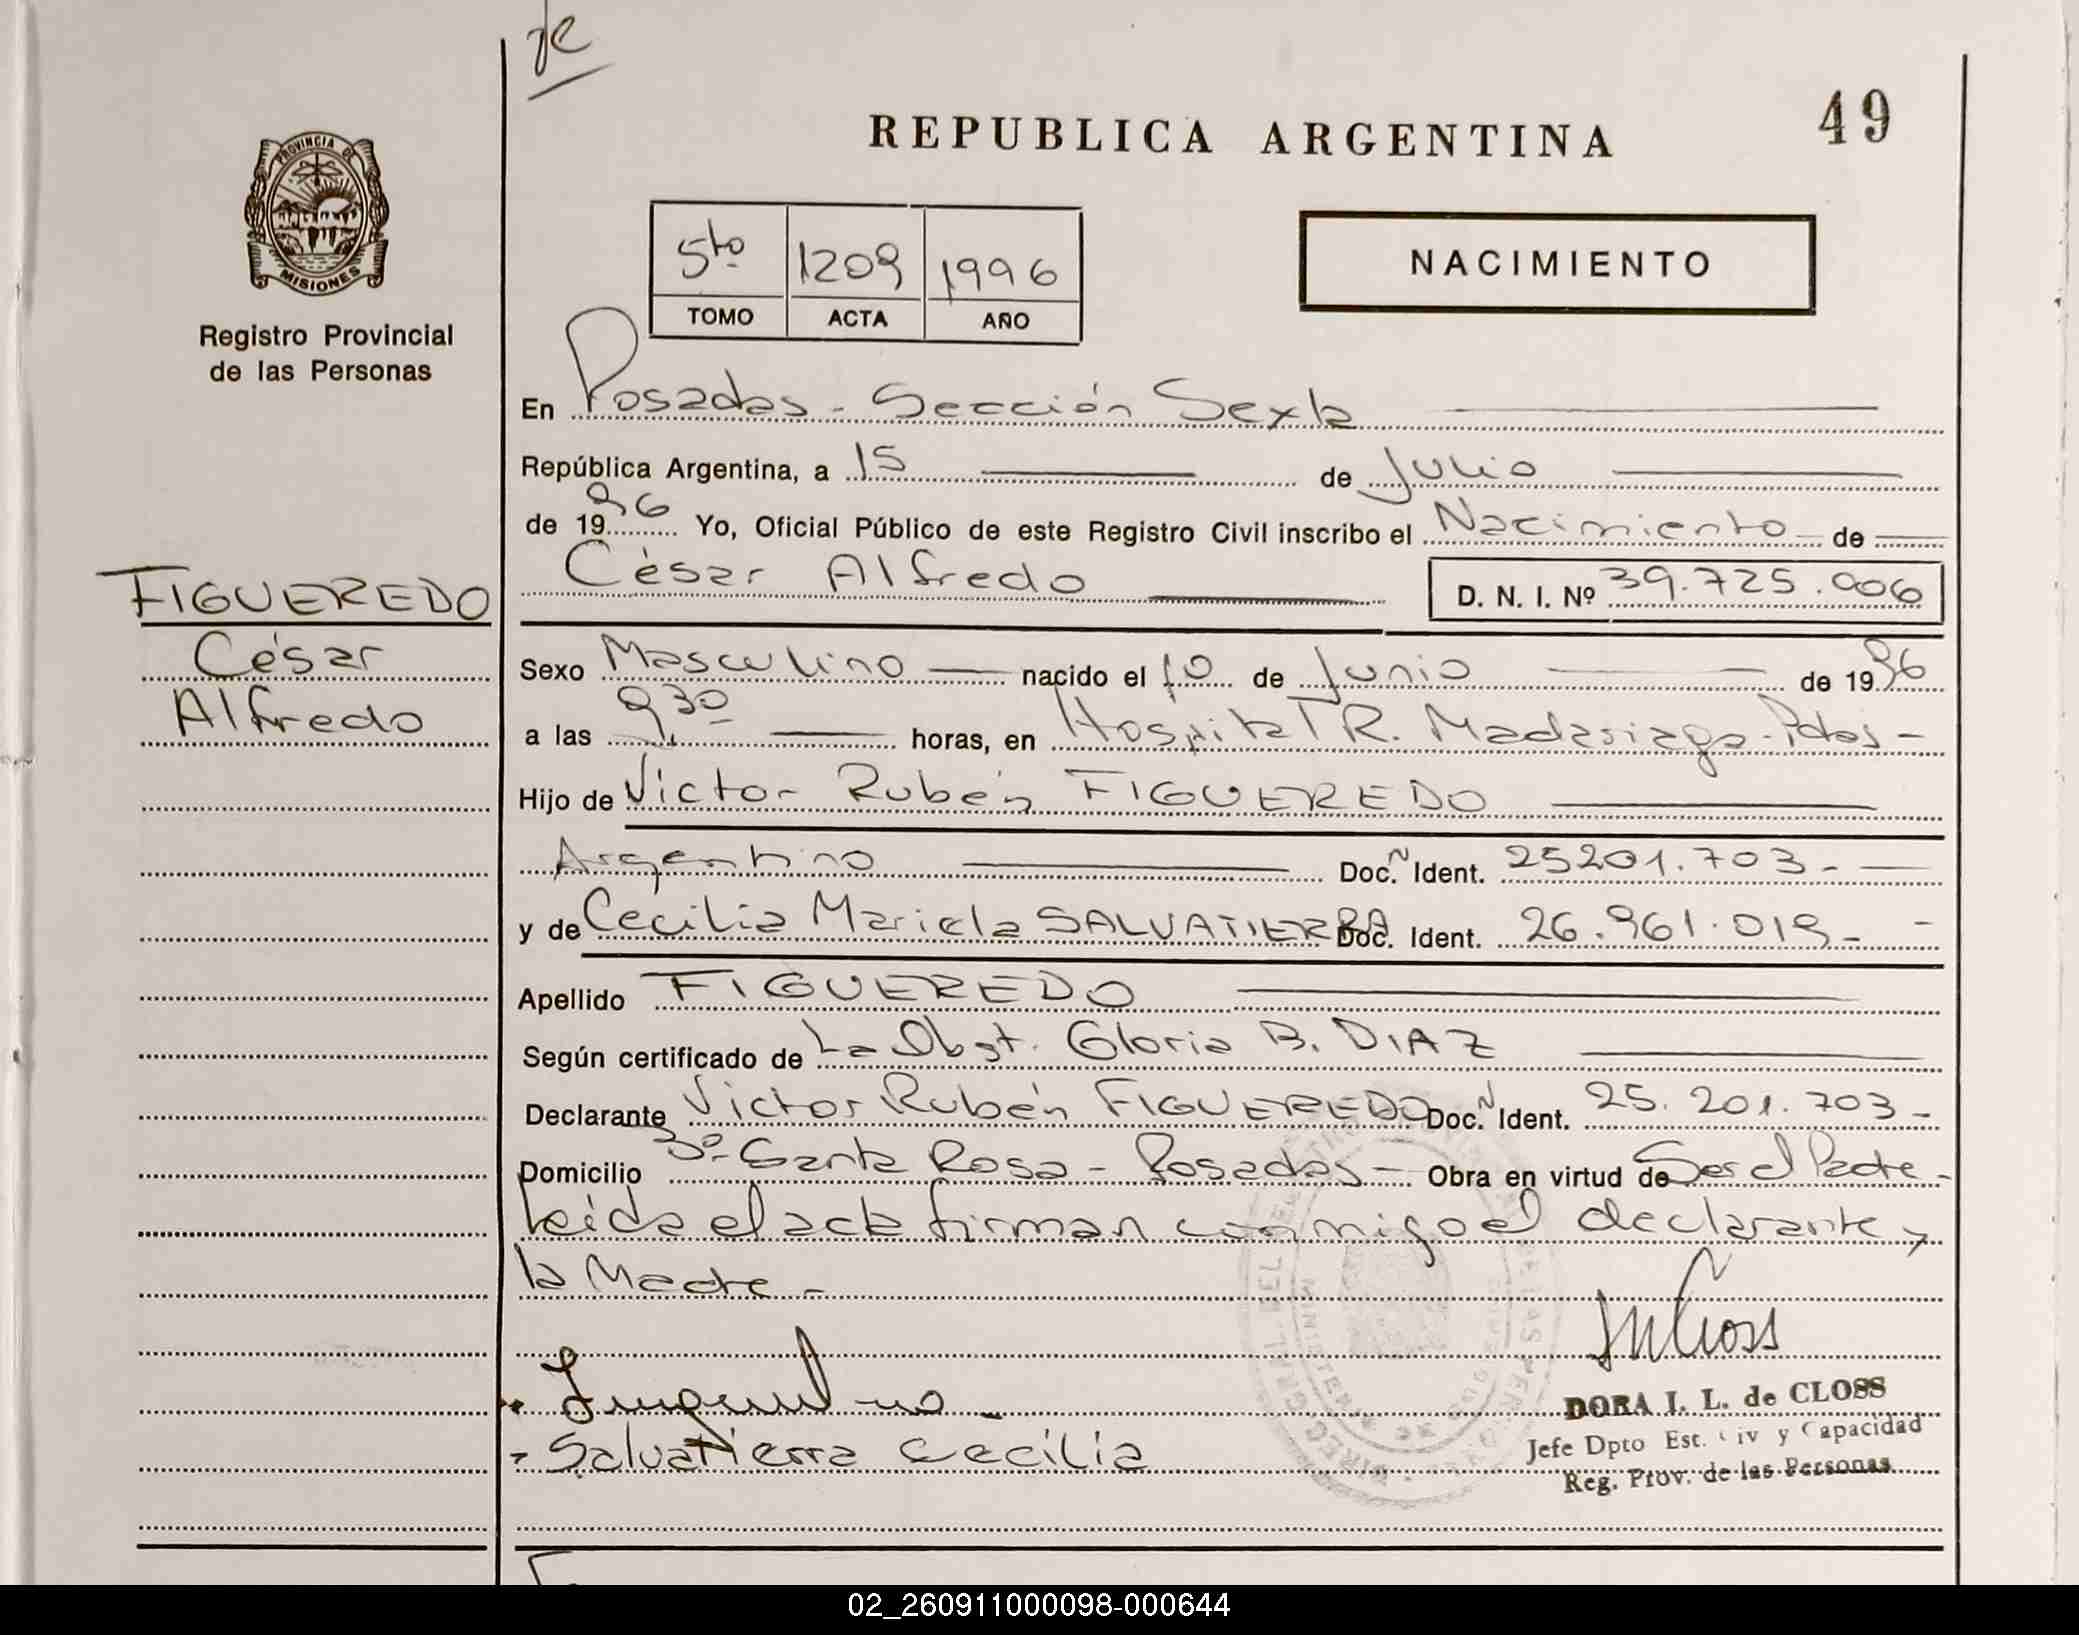 REPUBLICA ARGENTINA
49
PROVINCIA DE
MISIONES
Registro Provincial
de las Personas
5to 1209 1996
TOMO ACTA AÑO
NACIMIENTO
En Posadas - Sección Sexta
República Argentina, a 15 de Julio
de 1996 Yo, Oficial Público de este Registro Civil inscribo el Nacimiento de
César Alfredo D. N. I. Nº 39.725.006
FIGUEREDO
César
Alfredo
Sexo Masculino nacido el 10 de Junio de 1996
a las 9,30 horas, en Hospital R. Madariaga - Pdas -
Hijo de Victor Rubén FIGUEREDO
Argentino Doc. N Ident. 25201.703 -
y de Cecilia Mariela SALVATIERRA Doc. Ident. 26.961.019 -
Apellido FIGUEREDO
Según certificado de La Obst. Gloria B. DIAZ
Declarante Victor Rubén FIGUEREDO Doc. N Ident. 25.201.703 -
Domicilio Bº Santa Rosa - Posadas - Obra en virtud de Ser el Padre -
Leida el acta firman conmigo el declarante y
la Madre -
Salvatierra Cecilia
DORA I. L. de CLOSS
Jefe Dpto Est. Civ y Capacidad
Reg. Prov. de las Personas
02_260911000098-000644